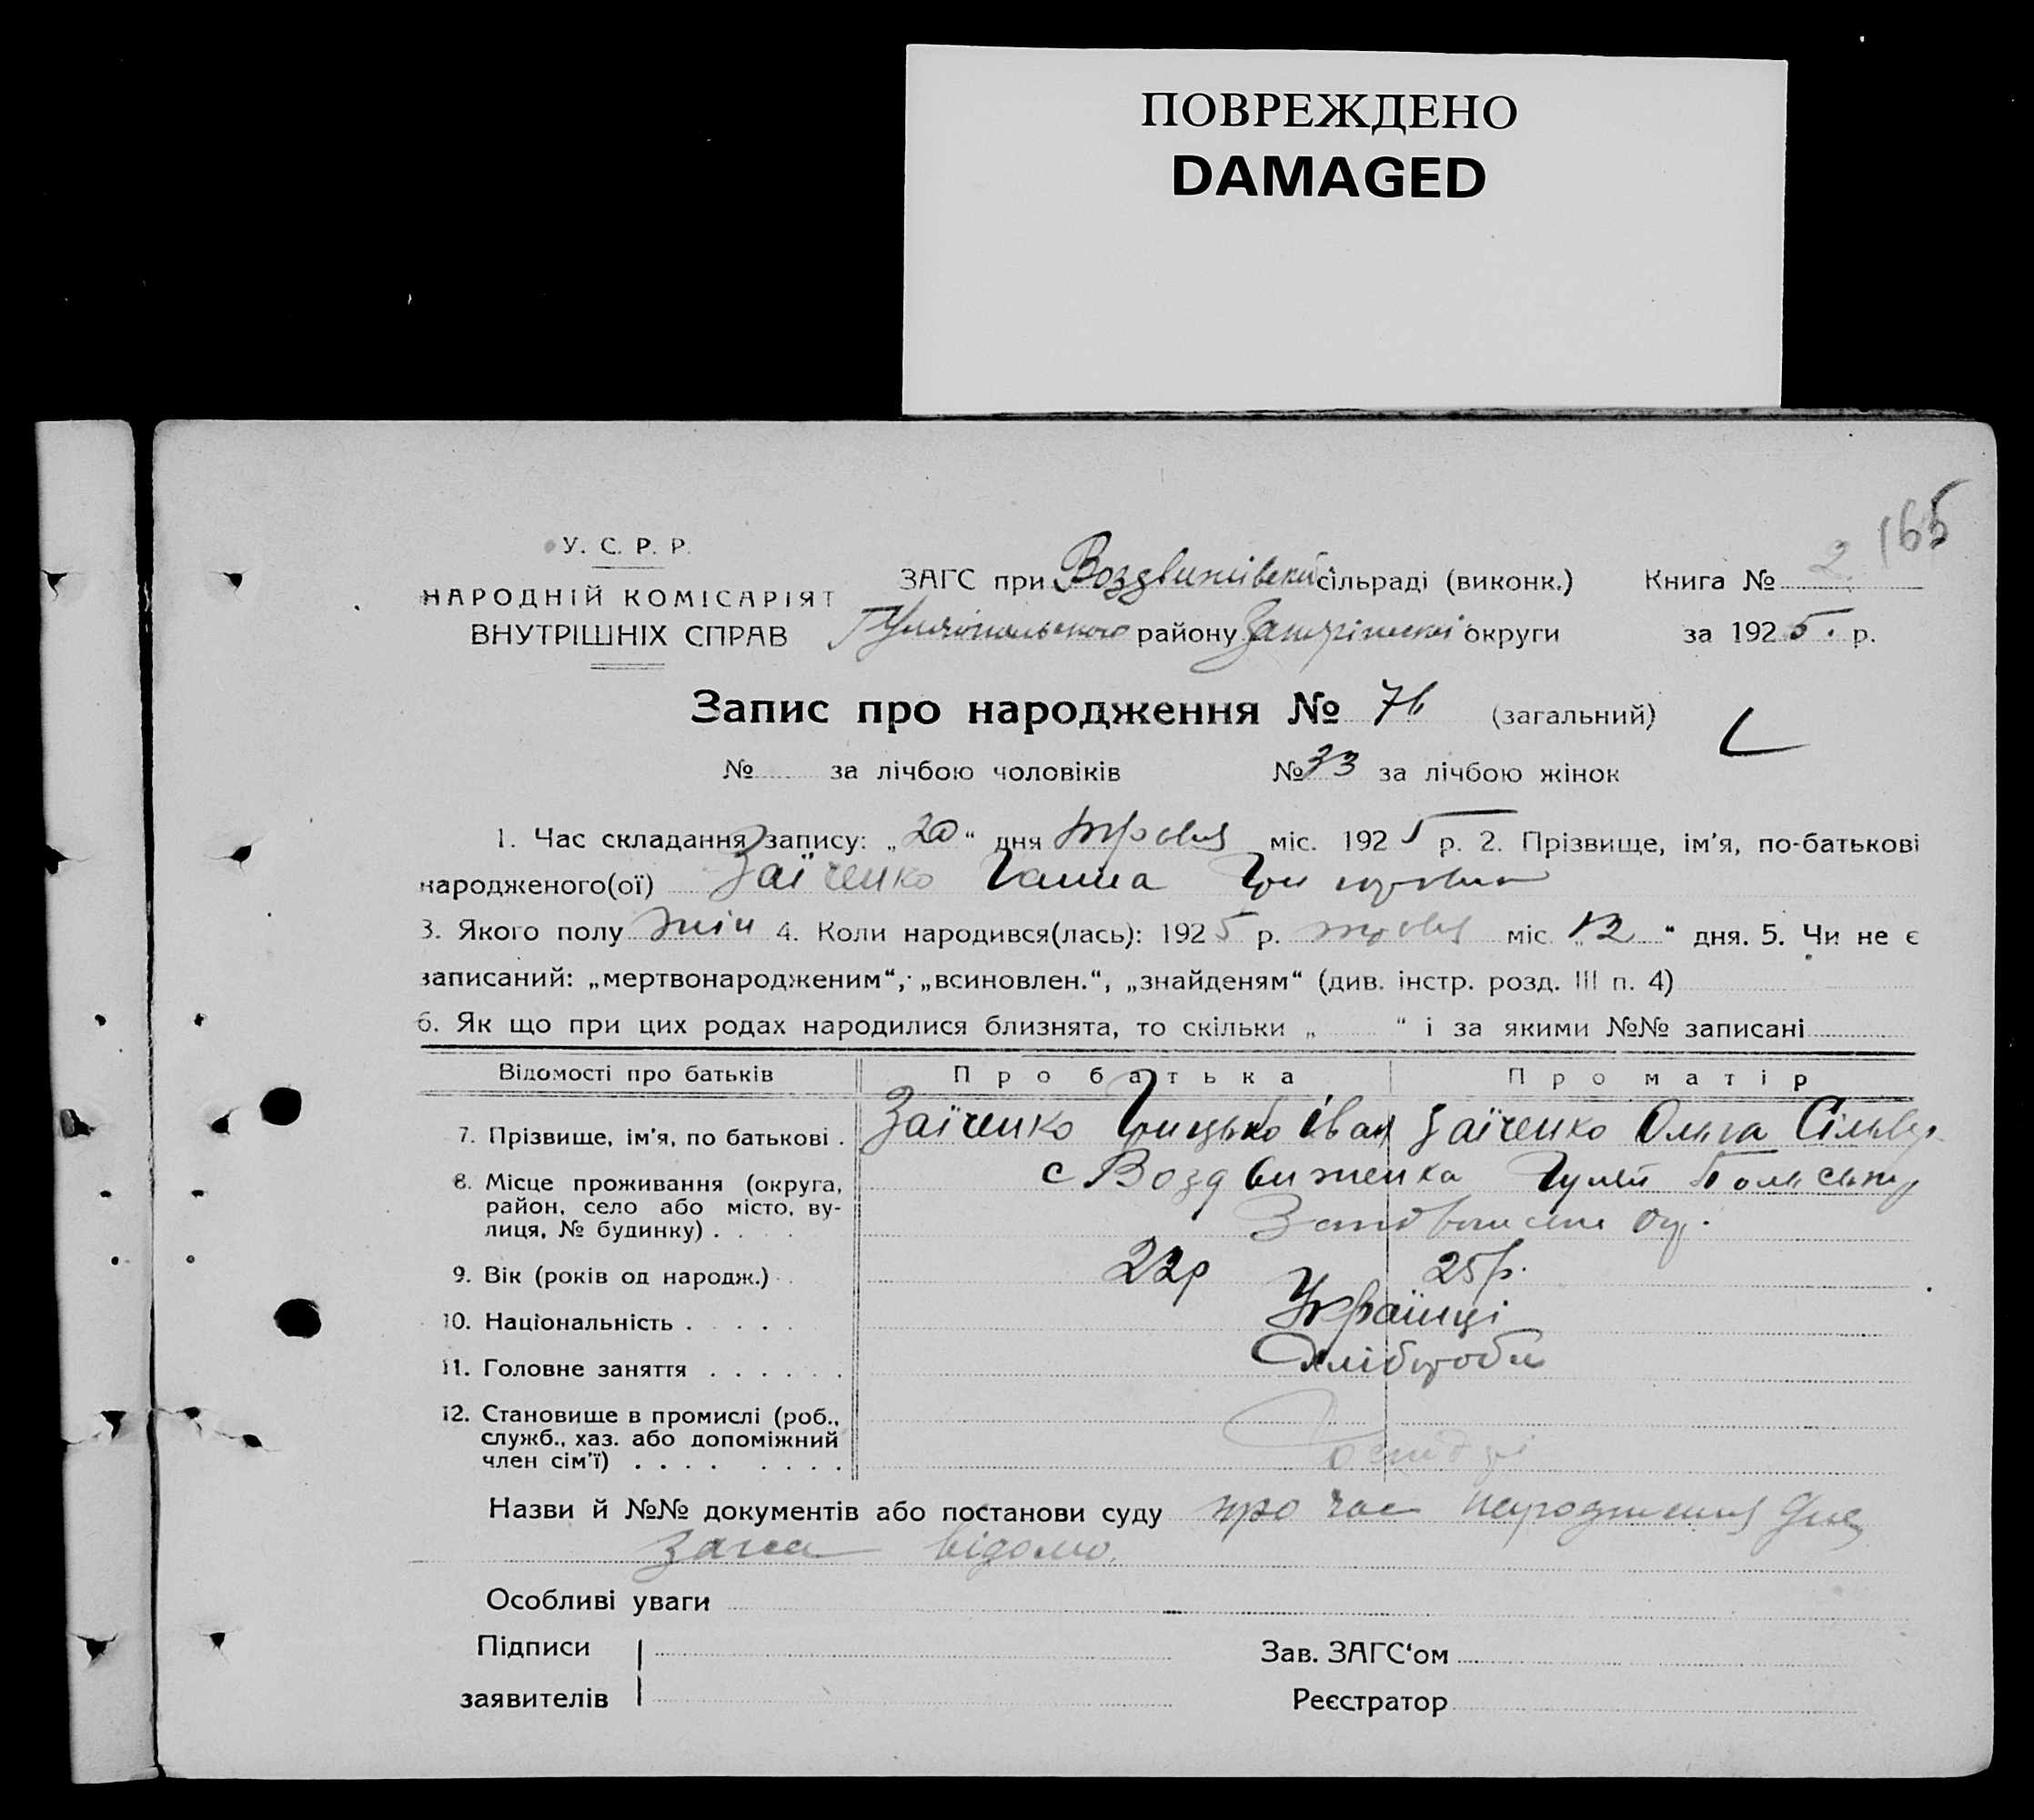 ПОВРЕЖДЕНО
DAMAGED
165
У. С. Р. Р.
НАРОДНІЙ КОМІСАРІЯТ
ВНУТРІШНІХ СПРАВ
ЗАГС при Воздвижівській сільраді (виконк.) Книга № 2
району округи за 1925 р.
Запис про народження № (загальний)
№ за лічбою чоловіків № 33 за лічбою жінок
1. Час складання запису: „20“ дня травня міс. 1925 р. 2. Прізвище, ім'я, по-батькові
народженого(ої) Заїченко Ганна Григоровна
3. Якого полу жін 4. Коли народився(лась): 1925 р. травня міс. „12“ дня. 5. Чи не є
записаний: „мертвонародженим“, „всиновлен.“, „знайденям“ (див. інстр. розд. III п. 4)
6. Як що при цих родах народилися близнята, то скільки „ “ і за якими №№ записані
Відомості про батьків Про батька Про матір
7. Прізвище, ім'я, по батькові . Заїченко Грицько Іван Заїченко Ольга Сільвер
8. Місце проживання (округа, район, село або місто, вулиця, № будинку) . . . с Воздвиженка Гуляй
9. Вік (років од народж.) . . 22р 25р.
10. Національність . . . . . Українці
11. Головне заняття . . . . . . Хлібороби
12. Становище в промислі (роб.,
служб., хаз. або допоміжний
член сім'ї) . . . . . . . .
Назви й №№ документів або постанови суду про час народження
відомо.
Особливі уваги
Підписи
заявителів
Зав. ЗАГС'ом
Реєстратор